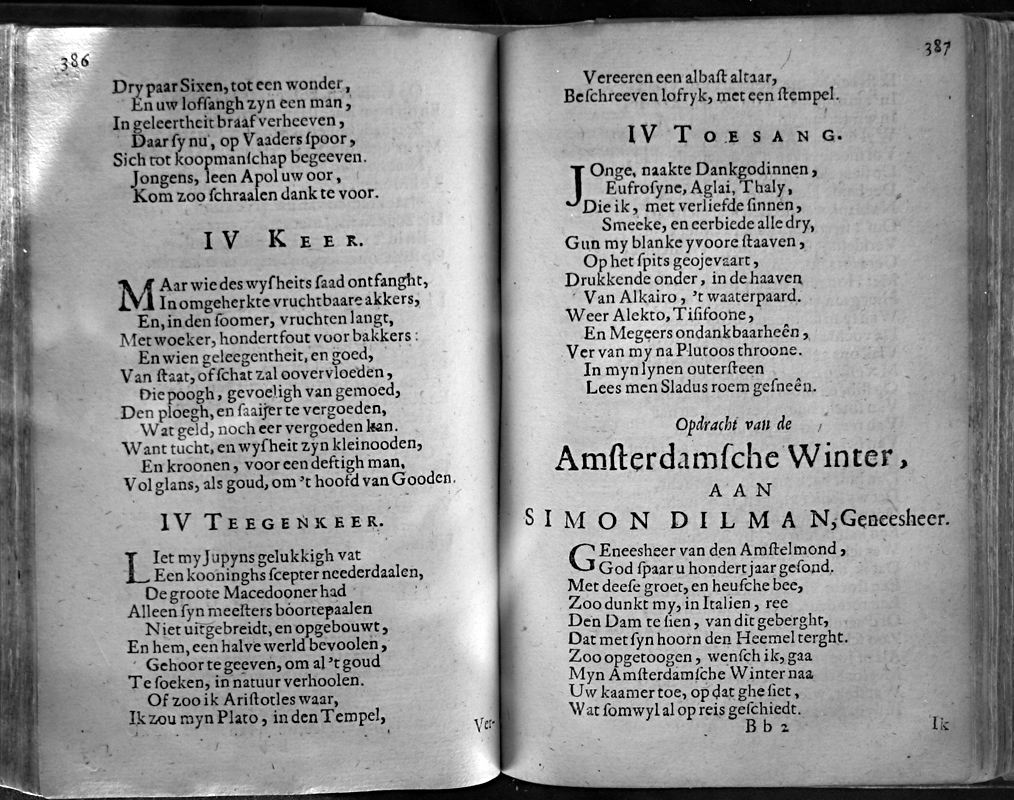 386
Dry paar Sixen, tot een wonder,
En uw lofſangh zyn een man,
In geleertheit braaf verheeven,
Daar ſy nu, op Vaaders ſpoor,
Sich tot koopmanſchap begeeven.
Jongens, leen Apol uw oor,
Kom zoo ſchraalen dank te voor.
IV KEER.
MAar wie des wyſheits ſaad ontfanght,
In omgeherkte vruchtbaare akkers,
En, in den ſoomer, vruchten langt,
Met woeker, hondertfout voor bakkers:
En wien geleegentheit, en goed,
Van ſtaat, of ſchat zal oovervloeden,
Die poogh, gevoeligh van gemoed,
Den ploegh, en ſaaijer te vergoeden,
Wat geld, noch eer vergoeden kan.
Want tucht, en wyſheit zyn kleinooden,
En kroonen, voor een deftigh man,
Vol glans, als goud, om 't hoofd van Gooden.
IV TEEGENKEER.
LIet my Jupyns gelukkigh vat
Een kooninghs ſcepter neederdaalen,
De groote Macedooner had
Alleen ſyn meeſters boortepaalen
Niet uitgebreidt, en opgebouwt,
En hem, een halve werld bevoolen,
Gehoor te geeven, om al 't goud
Te ſoeken, in natuur verhoolen.
Of zoo ik Ariſtotles waar,
Ik zou myn Plato, in den Tempel,
Ver-
387
Vereeren een albaſt altaar,
Beſchreeven lofryk, met een ſtempel.
IV TOESANG.
JOnge, naakte Dankgodinnen,
Eufroſyne, Aglai, Thaly,
Die ik, met verliefde ſinnen,
Smeeke, en eerbiede alle dry,
Gun my blanke yvoore ſtaaven,
Op het ſpits geojevaart,
Drukkende onder, in de haaven
Van Alkairo, 't waaterpaard.
Weer Alekto, Tiſifoone,
En Megeers ondankbaarheên,
Ver van my na Plutoos throone.
In myn lynen outerſteen
Lees men Sladus roem geſneên.
Opdracht van de
Amſterdamſche Winter,
AAN
SIMON DILMAN, Geneesheer.
GEneesheer van den Amſtelmond,
God ſpaar u hondert jaar geſond.
Met deeſe groet, en heuſche bee,
Zoo dunkt my, in Italien, ree
Den Dam te ſien, van dit geberght,
Dat met ſyn hoorn den Heemel terght.
Zoo opgetoogen, wenſch ik, gaa
Myn Amſterdamſche Winter naa
Uw kaamer toe, op dat ghe ſiet,
Wat ſomwyl al op reis geſchiedt.
Bb 2
Ik